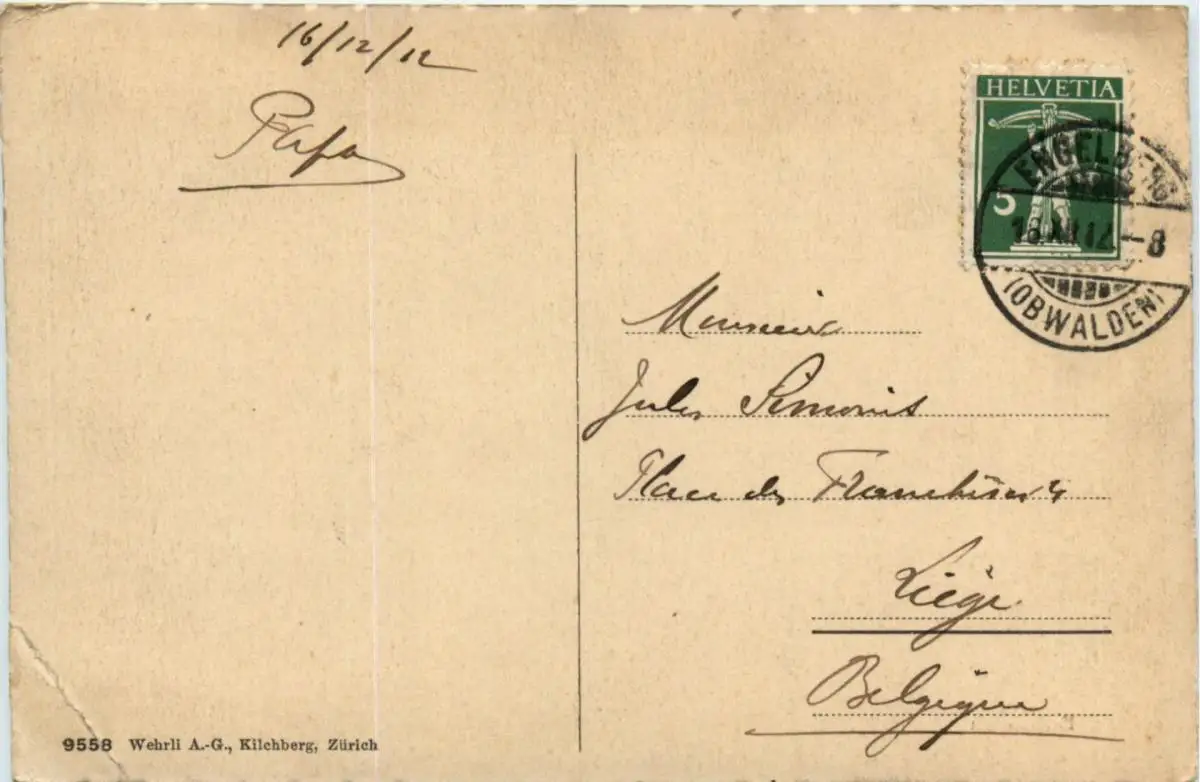 16/12/12
Papa
HELVETIA
5
ENGELBERG
16.XII.12.–8
(OBWALDEN)
Monsieur
Jules Simonis
Place des Franchises 4
Liége
Belgique
9558 Wehrli A.-G., Kilchberg, Zürich